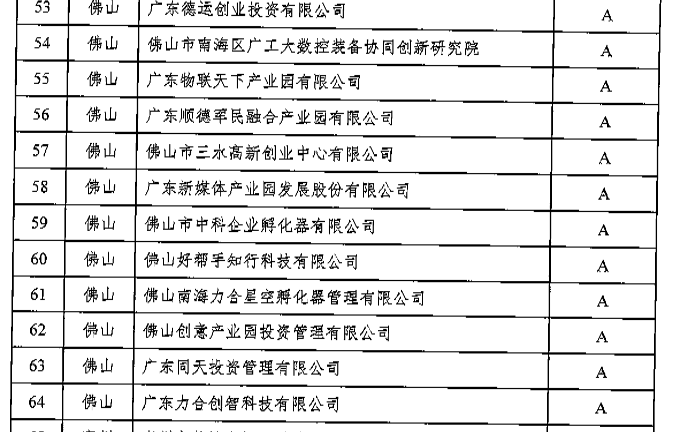 53 佛山 广东德运创业投资有限公司 A
54 佛山 佛山市南海区广工大数控装备协同创新研究院 A
55 佛山 广东物联天下产业园有限公司 A
56 佛山 广东顺德军民融合产业园有限公司 A
57 佛山 佛山市三水高新创业中心有限公司 A
58 佛山 广东新媒体产业园发展股份有限公司 A
59 佛山 佛山市中科企业孵化器有限公司 A
60 佛山 佛山好帮手知行科技有限公司 A
61 佛山 佛山南海力合星空孵化器管理有限公司 A
62 佛山 佛山创意产业园投资管理有限公司 A
63 佛山 广东同天投资管理有限公司 A
64 佛山 广东力合创智科技有限公司 A